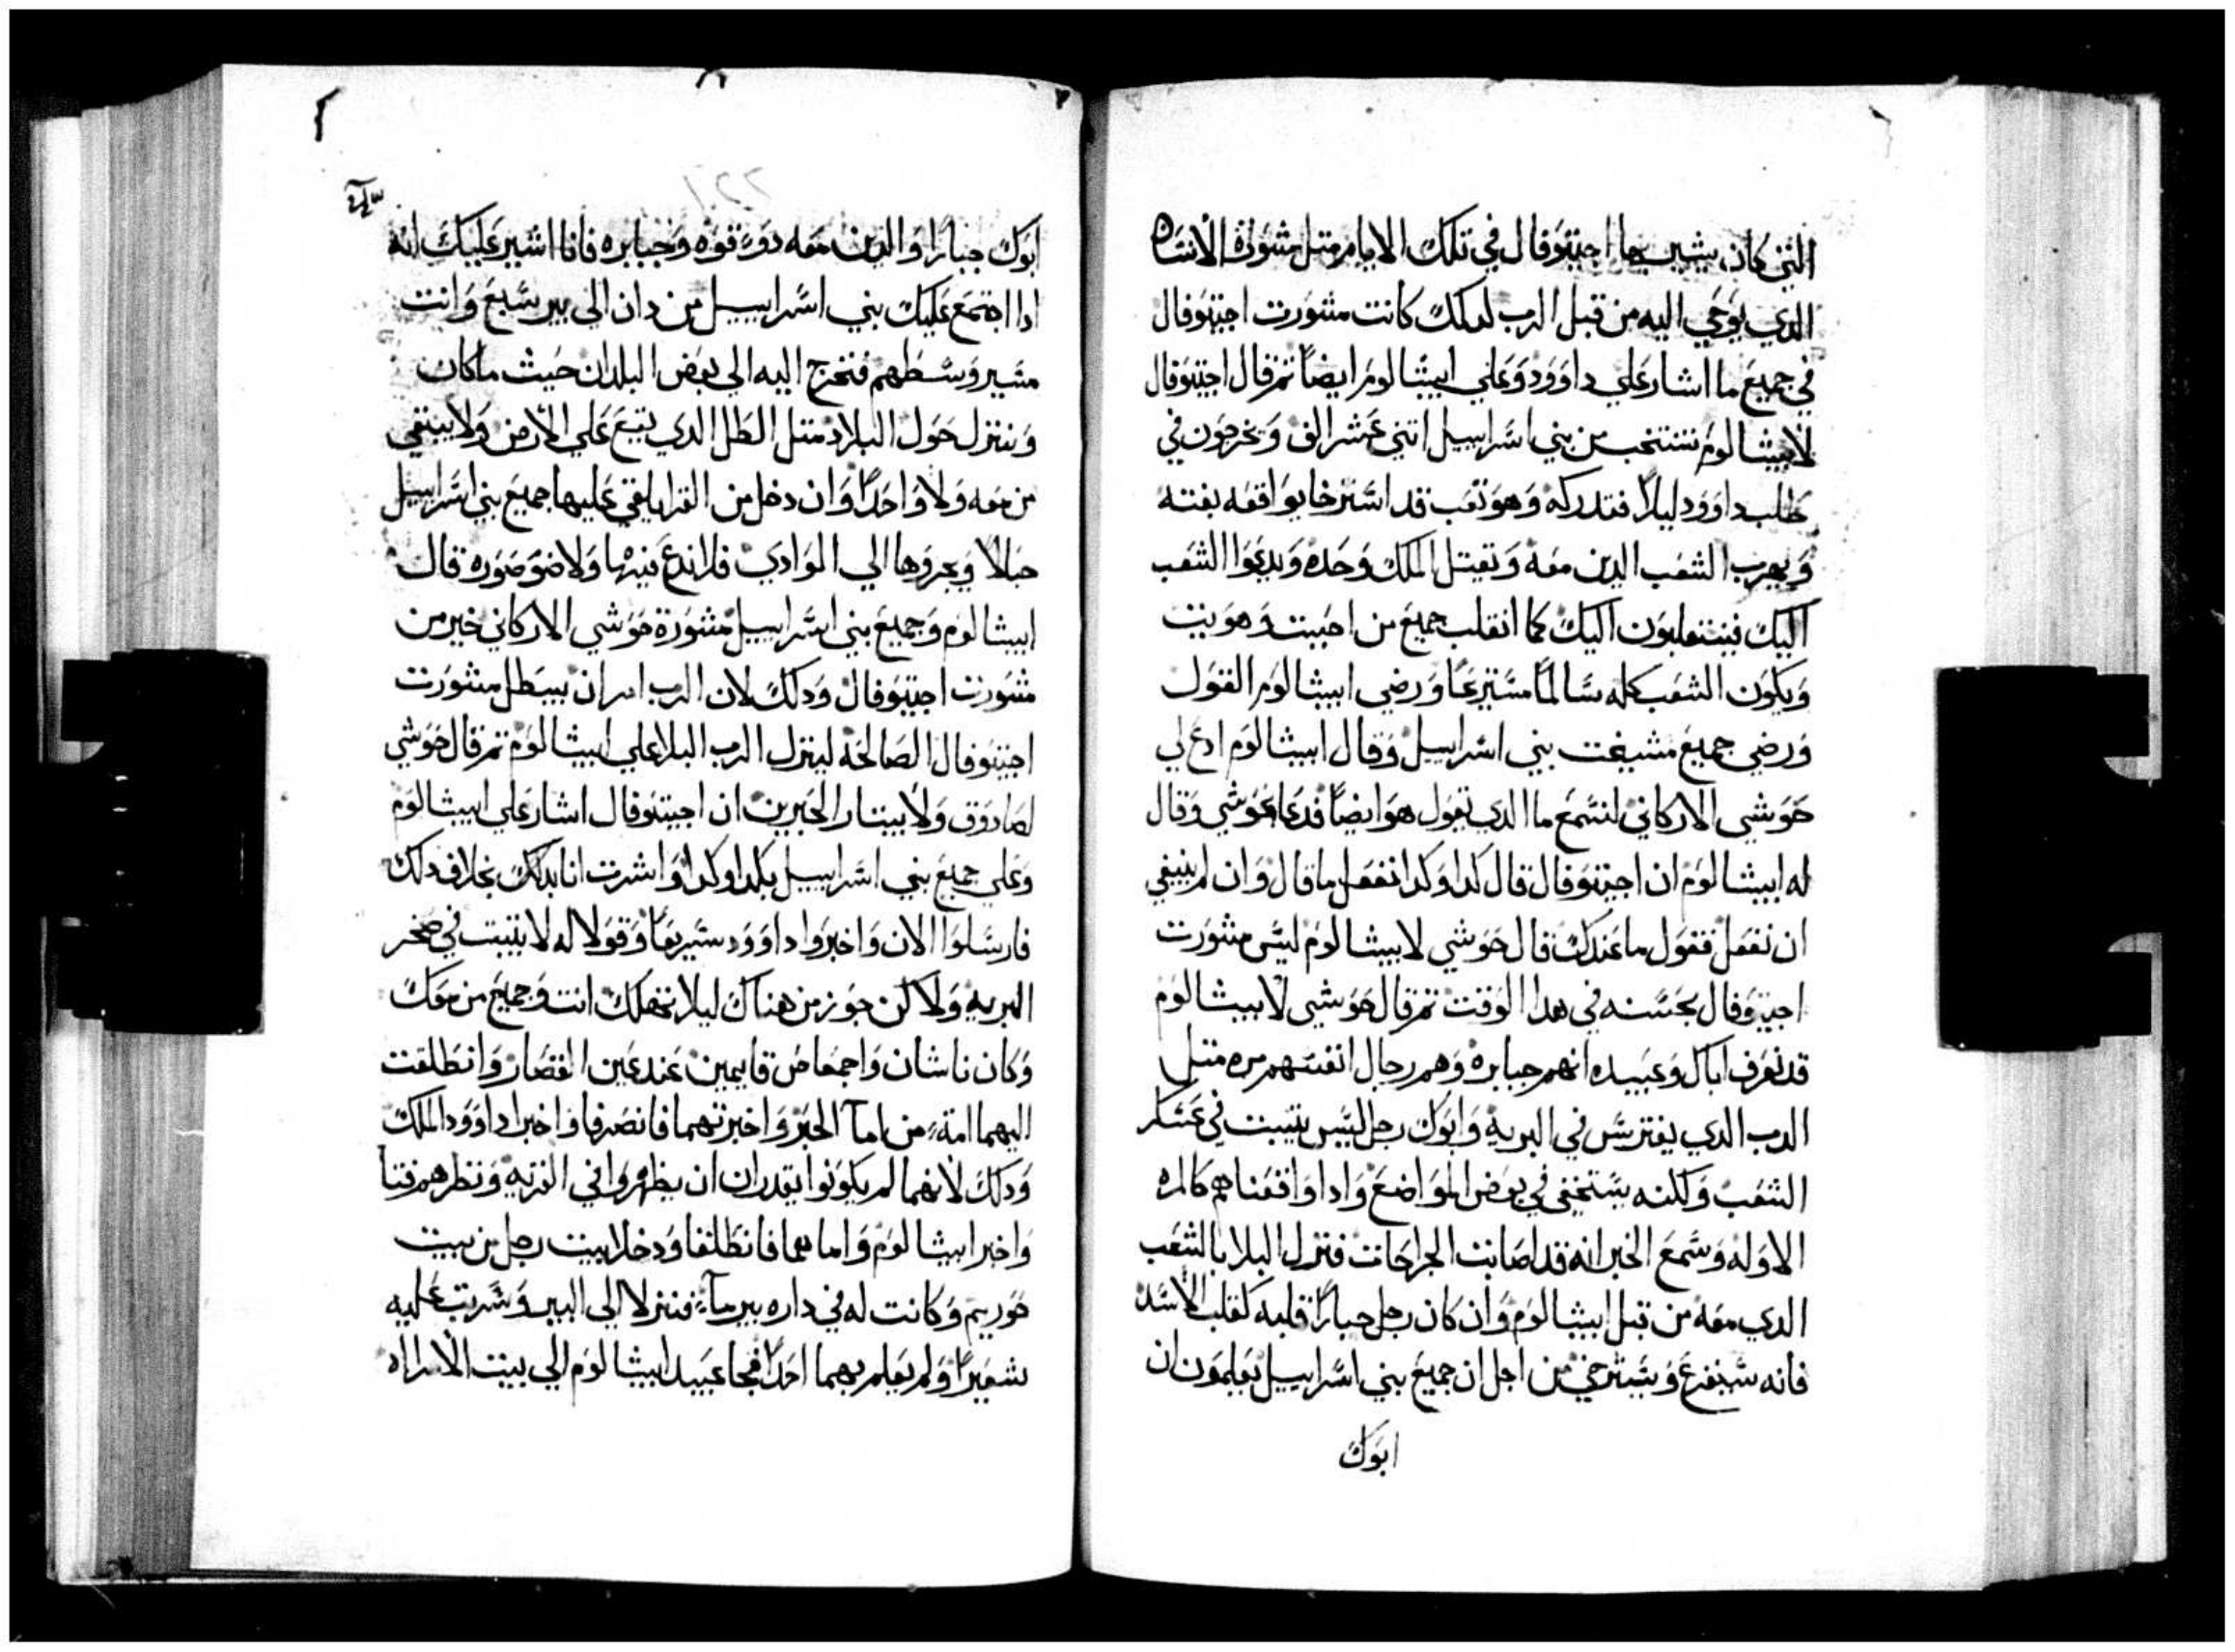 التي كان يشير بها اجيتوفال في تلك الايام متل مشورة الانسان
الدي يوحي اليه من قبل الرب لدلك كانت مشورت اجيتوفال
في جميع ما اشار علي داوود وعلي ابيشالوم ايضاً تم قال اجيتوفال
لابيشالوم ننتخب من بني اسراييل اتني عشر الف ونخرجون في
طلب داوود ليلاً فتدركه وهو تعب قد استرخا يواقعه بغته
ويهرب الشعب الدين معه وتقتل الملك وحده ويدعوا الشعب
اليك فينقلبون اليك كما انقلب جميع من احببت وهو بيت
ويكون الشعب كله سالماً مستريحاً ورضي ابيشالوم القول
ورضي جميع مشيخت بني اسراييل وقال ابيشالوم ادع لي
حوشي الاركاني لنسمع ما الدي تقول هو ايضاً فدعا حوشي وقال
له ابيشالوم ان اجيتوفال قال كدا وكدا نفعل ما قال وان لم ينبغي
ان نفعل فقول ما عندك قال حوشي لابيشالوم ليس مشورت
اجيتوفال بحسنه في هدا الوقت تم قال حوشي لابيشالوم
قد تعرف اباك وعبيده انهم جبابره وهم رجال انفسهم مره متل
الدب الدي يفترس في البريه وابوك رجل ليس يتبت في عسكر
الشعب ولكنه يستخفي في بعض المواضع وادا واقعناهم كالمره
الاوله وسمع الخبر انه قد اصابت الجراحات فتنزل البلا بالشعب
الدي معه من قبل ابيشالوم وان كان رجل جباراً قلبه كقلب الاسد
فانه سيفزع ويسترخي من اجل ان جميع بني اسراييل يعلمون ان
ابوك
ابوك جباراً والدين معه دوي قوه وجبابره فانا اشير عليك انه
ادا اجتمع عليك بني اسراييل من دان الي بير سبع وانت
مسير وسطهم فتخرج اليه الي بعض البلدان حيث ما كان
وننزل حول البلاد متل الطل الدي يقع علي الارض ولا يبتقي
من معه ولا واحداً وان دخل من القرا يلقي عليها جميع بني اسراييل
حبالاً ويجروها الي الوادي فلا ندع فيها ولا ضو ضوره قال
ابيشالوم وجميع بني اسراييل مشورة حوشي الاركاني خير من
مشورت اجيتوفال ودلك لان الرب امر ان يبطل مشورت
اجيتوفال الصالحه لينزل الرب البلا علي ابيشالوم تم قال حوشي
لصادوق ولابيتار الحبرين ان اجيتوفال اشار علي ابيشالوم
وعلي جميع بني اسراييل بكدا وكدا واشرت انا بدلك بخلاف دلك
فارسلوا الان واخبروا داوود سريعاً وقولا له لا يتبت في صخر
البريه ولاكن جوز من هناك ليلا تهلك انت وجميع من معك
وكان ناشان واجمعاص قايمين عند عين القصار وانطلقت
اليهما امة من اما الحبر واخبرتهما فانصرفا واخبرا داوود الملك
ودلك لانهما لم يكونوا يقدران ان يظهروا في القريه ونظرهم فتا
واخبر ابيشالوم واما هما فانطلقا ودخلا بيت رجل من بيت
حوريم وكانت له في داره بير مآء فنزلا الي البير وسترت عليه
شعيراً ولم يعلم بهما احداً فجا عبيد ابيشالوم الي بيت الامراه